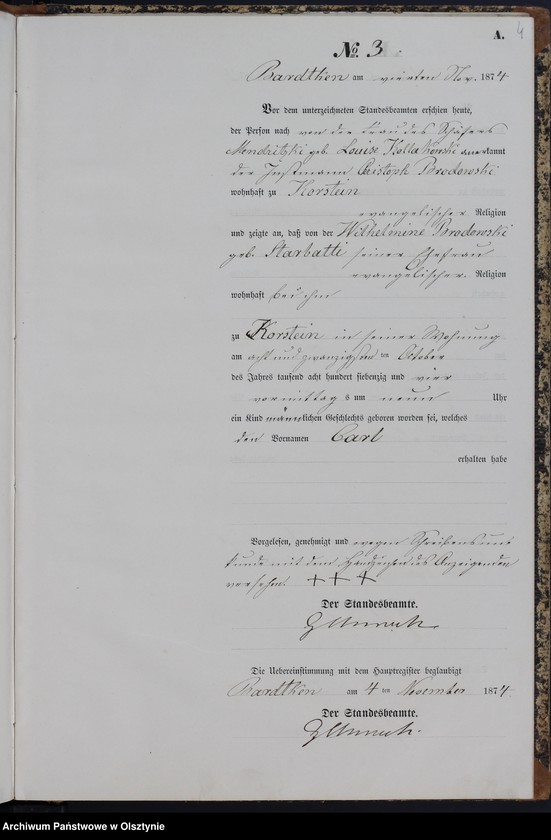 4
A.
No. 3.
Bardtken am vierten Nov. 1874
Vor dem unterzeichneten Standesbeamten erschien heute,
der Person nach von der Frau des Schäfers
Mendritzki geb. Louise anerkannt
der Instmann Cristoph Brodowski
wohnhaft zu Korstein
evangelischer Religion
und zeigte an, daß von der Wilhelmine Brodowski
geb. Starbatti seiner Ehefrau
evangelischer. Religion
wohnhaft bei ihm
zu Korstein in seiner Wohnung
am acht und zwanzigsten ten October
des Jahres tausend acht hundert siebenzig und vier
vormittags um neun Uhr
ein Kind männlichen Geschlechts geboren worden sei, welches
den Vornamen Carl
erhalten habe
Vorgelesen, genehmigt und wegen Schreibensun-
kunde mit dem Handzeichen des Anzeigenden
versehen. +++
Der Standesbeamte.
Die Uebereinstimmung mit dem Hauptregister beglaubigt
Bardtken am 4 ten November 1874
Der Standesbeamte.
Archiwum Państwowe w Olsztynie